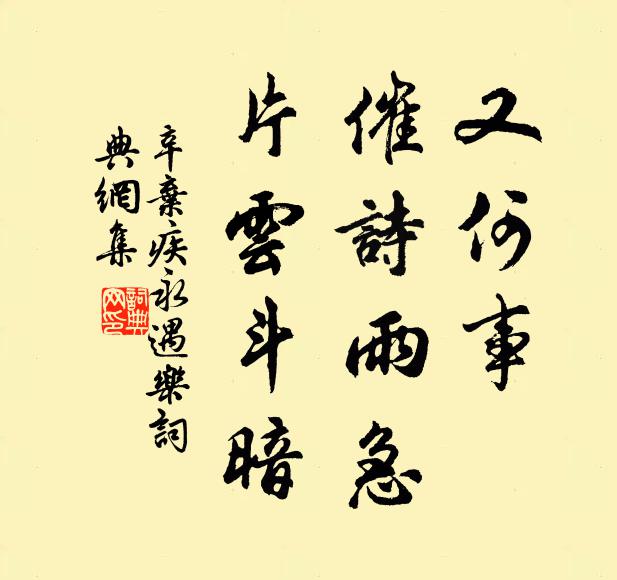 又何事
催詩雨急
片雲斗暗
辛棄疾永遇樂詞
典網集
詞典
网印